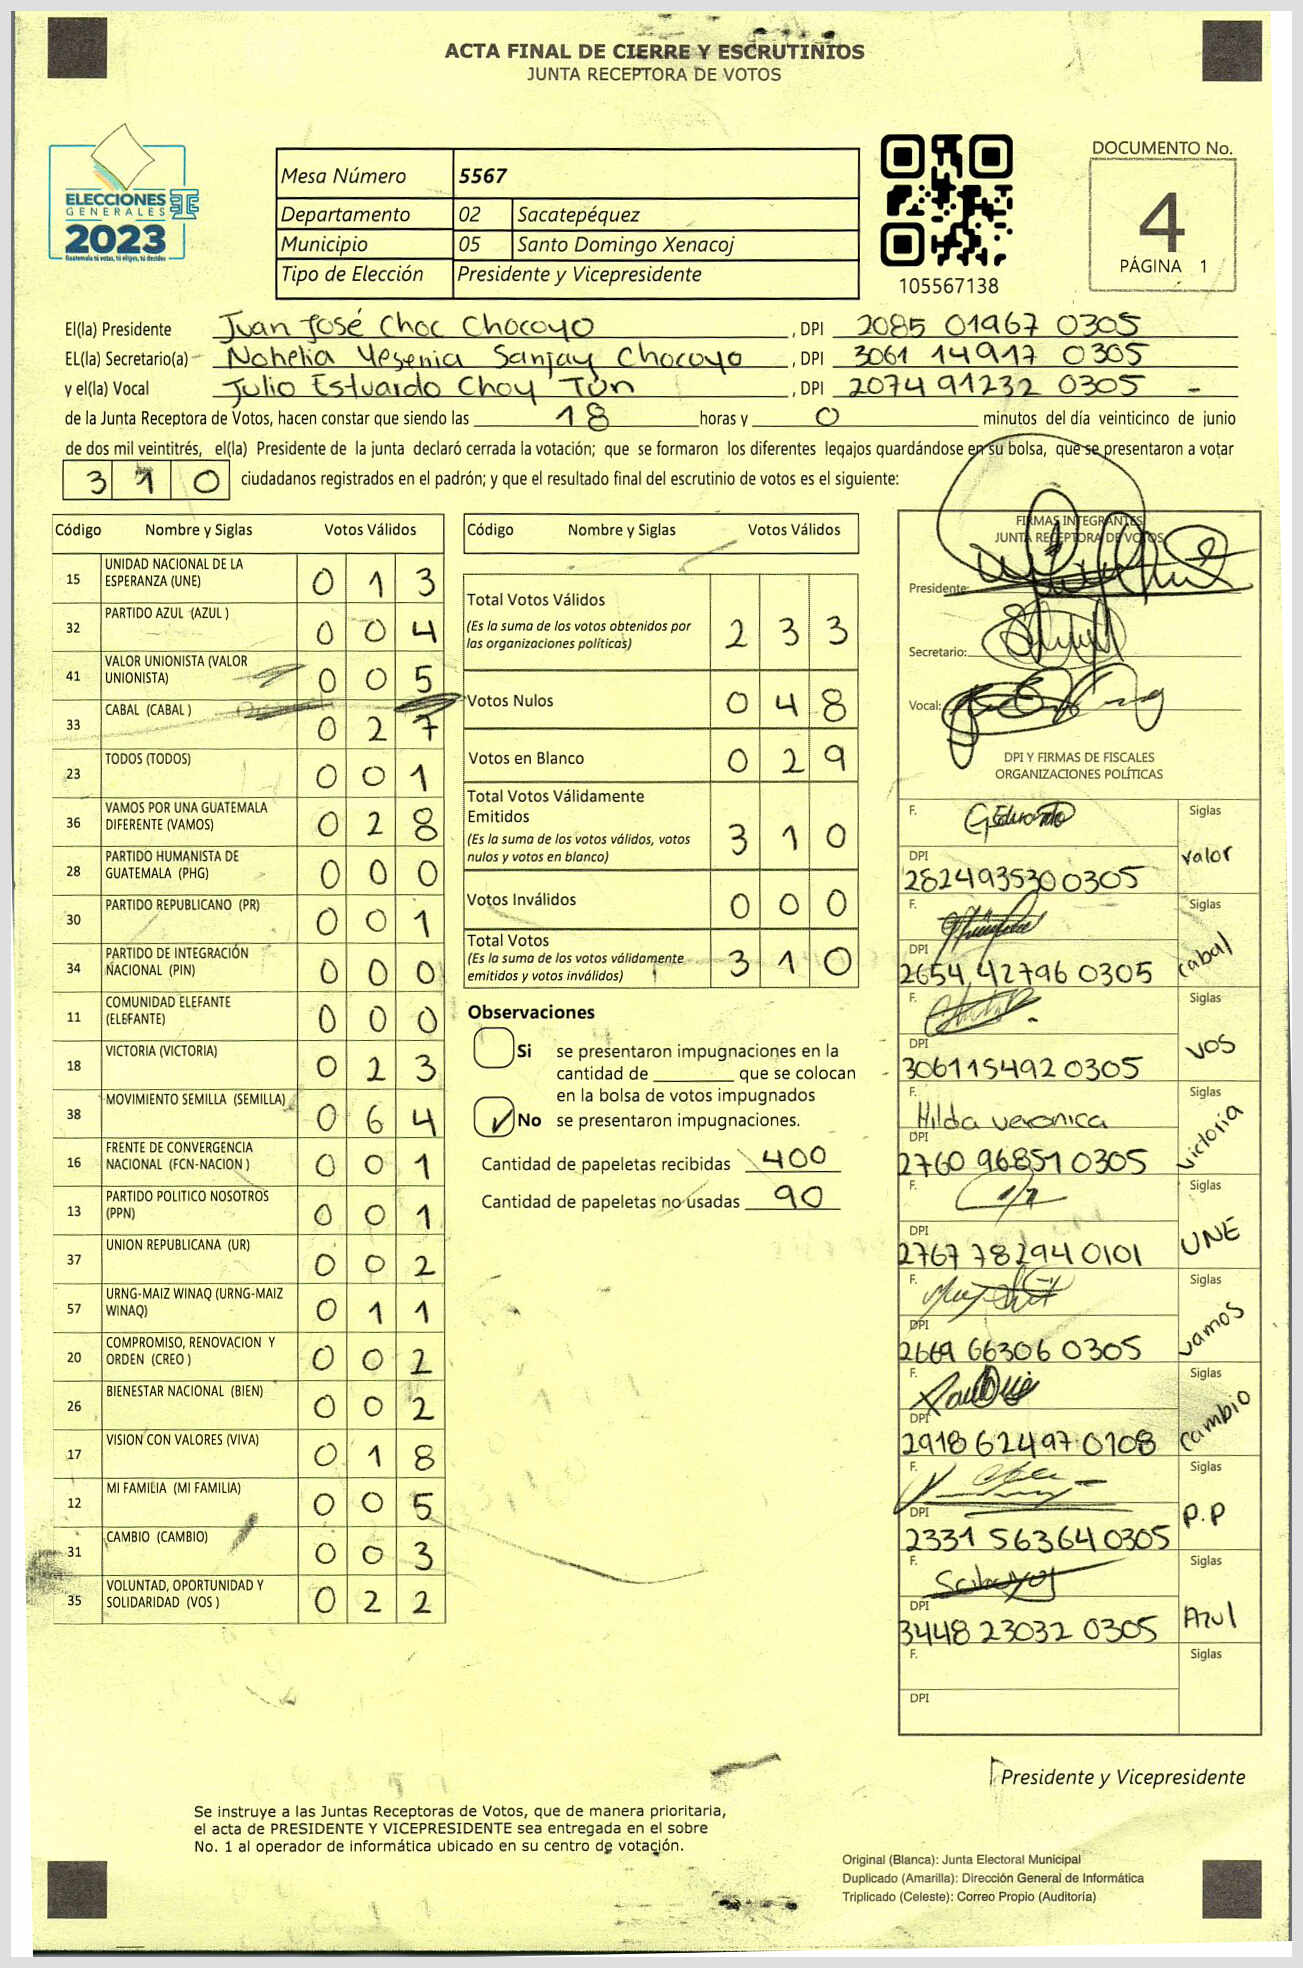 ACTA FINAL DE CIERRE Y ESCRUTINIOS
JUNTA RECEPTORA DE VOTOS
ELECCIONES
GENERALES
2023
Guatemala tú votas, tú eliges, tú decides
Mesa Número 5567
Departamento 02 Sacatepéquez
Municipio 05 Santo Domingo Xenacoj
Tipo de Elección Presidente y Vicepresidente
105567138
DOCUMENTO No.
4
PÁGINA 1
El(la) Presidente Juan José Choc Chocoyo , DPI 2085 01967 0305
EL(la) Secretario(a) Nohelia Yesenia Sanjay Chocoyo , DPI 3061 14917 0305
y el(la) Vocal Julio Estuardo Choy Tun , DPI 2074 91232 0305
de la Junta Receptora de Votos, hacen constar que siendo las 18 horas y 0 minutos del día veinticinco de junio
de dos mil veintitrés, el(la) Presidente de la junta declaró cerrada la votación; que se formaron los diferentes legajos guardándose en su bolsa, que se presentaron a votar
310 ciudadanos registrados en el padrón; y que el resultado final del escrutinio de votos es el siguiente:
Código Nombre y Siglas Votos Válidos
15 UNIDAD NACIONAL DE LA ESPERANZA (UNE) 0 1 3
32 PARTIDO AZUL (AZUL ) 0 0 4
41 VALOR UNIONISTA (VALOR UNIONISTA) 0 0 5
33 CABAL (CABAL ) 0 2 7
23 TODOS (TODOS) 0 0 1
36 VAMOS POR UNA GUATEMALA DIFERENTE (VAMOS) 0 2 8
28 PARTIDO HUMANISTA DE GUATEMALA (PHG) 0 0 0
30 PARTIDO REPUBLICANO (PR) 0 0 1
34 PARTIDO DE INTEGRACIÓN NACIONAL (PIN) 0 0 0
11 COMUNIDAD ELEFANTE (ELEFANTE) 0 0 0
18 VICTORIA (VICTORIA) 0 2 3
38 MOVIMIENTO SEMILLA (SEMILLA) 0 6 4
16 FRENTE DE CONVERGENCIA NACIONAL (FCN-NACION ) 0 0 1
13 PARTIDO POLITICO NOSOTROS (PPN) 0 0 1
37 UNION REPUBLICANA (UR) 0 0 2
57 URNG-MAIZ WINAQ (URNG-MAIZ WINAQ) 0 1 1
20 COMPROMISO, RENOVACION Y ORDEN (CREO ) 0 0 2
26 BIENESTAR NACIONAL (BIEN) 0 0 2
17 VISION CON VALORES (VIVA) 0 1 8
12 MI FAMILIA (MI FAMILIA) 0 0 5
31 CAMBIO (CAMBIO) 0 0 3
35 VOLUNTAD, OPORTUNIDAD Y SOLIDARIDAD (VOS ) 0 2 2
Código Nombre y Siglas Votos Válidos
Total Votos Válidos 2 3 3
(Es la suma de los votos obtenidos por
las organizaciones políticas)
Votos Nulos 0 4 8
Votos en Blanco 0 2 9
Total Votos Válidamente
Emitidos 3 1 0
(Es la suma de los votos válidos, votos
nulos y votos en blanco)
Votos Inválidos 0 0 0
Total Votos 3 1 0
(Es la suma de los votos válidamente
emitidos y votos inválidos)
Observaciones
Si se presentaron impugnaciones en la
cantidad de ________ que se colocan
en la bolsa de votos impugnados
No se presentaron impugnaciones.
Cantidad de papeletas recibidas 400
Cantidad de papeletas no usadas 90
FIRMAS INTEGRANTES
JUNTA RECEPTORA DE VOTOS
Presidente:
Secretario:
Vocal:
DPI Y FIRMAS DE FISCALES
ORGANIZACIONES POLÍTICAS
F. Siglas
DPI valor
2824935300305
F. Siglas
DPI cabal
2654 42796 0305
F. Siglas
DPI VOS
3061154920305
F. Hilda veronica Siglas
DPI victoria
2760 96851 0305
F. Siglas
DPI UNE
2767 78294 0101
F. Siglas
DPI vamos
2669 66306 0305
F. Siglas
DPI cambio
2918 62497 0108
F. Siglas
DPI P.P
2331 56364 0305
F. Siglas
DPI Azul
3448 23032 0305
F. Siglas
DPI
Presidente y Vicepresidente
Se instruye a las Juntas Receptoras de Votos, que de manera prioritaria,
el acta de PRESIDENTE Y VICEPRESIDENTE sea entregada en el sobre
No. 1 al operador de informática ubicado en su centro de votación.
Original (Blanca): Junta Electoral Municipal
Duplicado (Amarilla): Dirección General de Informática
Triplicado (Celeste): Correo Propio (Auditoría)